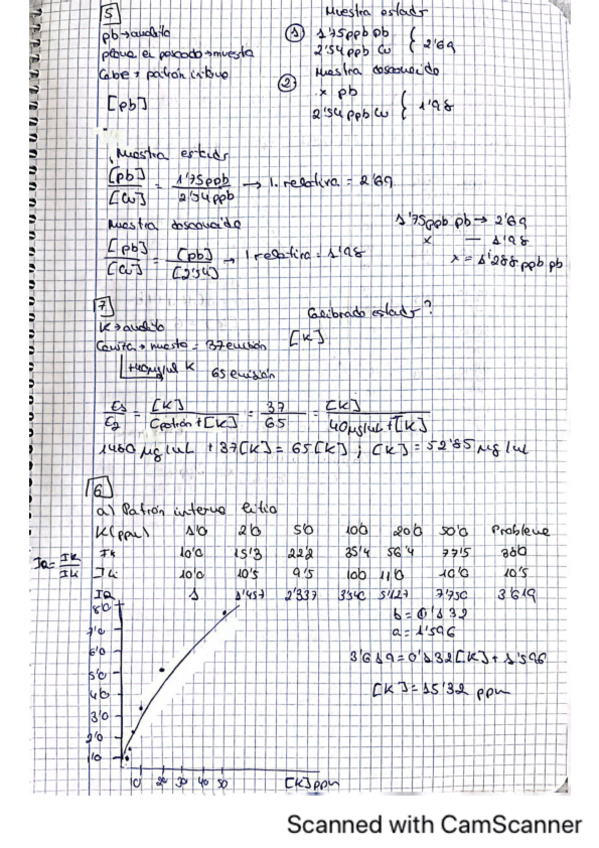 5
pb → analito
plomo en pescado → muestra
Cobre → patrón interno
[pb]
Muestra estadr
① 1'75 ppb pb
2'54 ppb Cu } 2'69
② Muestra desconocido
x pb
2'54 ppb Cu } 1'98
Muestra estadr
[pb] / [Cu] = 1'75 ppb / 2'54 ppb → I. relativa = 2'69
Muestra desconocido
[pb] / [Cu] = [pb] / [2'54] → I relativa = 1'98
1'75 ppb pb → 2'69
x — 1'98
x = 1'288 ppb pb
7
Calibrado estadr?
K → analito
muestra = 37 emisión
[K]
+40 µg/ml K 65 emisión
E1 / E2 = [K] / Cpatrón + [K] = 37 / 65 = [K] / 40 µg/mL + [K]
1480 µg/mL + 37[K] = 65[K] ; [K] = 52'85 µg/mL
6
a) Patrón interno litio
K (ppm) 1'0 2'0 5'0 10'0 20'0 50'0 Problema
IR = IK / ILi
IK 10'0 15'3 22'2 35'4 56'4 77'5 38'0
ILi 10'0 10'5 9'5 10'0 11'0 10'0 10'5
IR 1 1'457 2'337 3'540 5'127 7'750 3'619
8'0
7'0
6'0
5'0
4'0
3'0
2'0
1'0
10 20 30 40 50 [K] ppm
b = 0'132
a = 1'596
3'619 = 0'132 [K] + 1'596
[K] = 15'32 ppm
Scanned with CamScanner